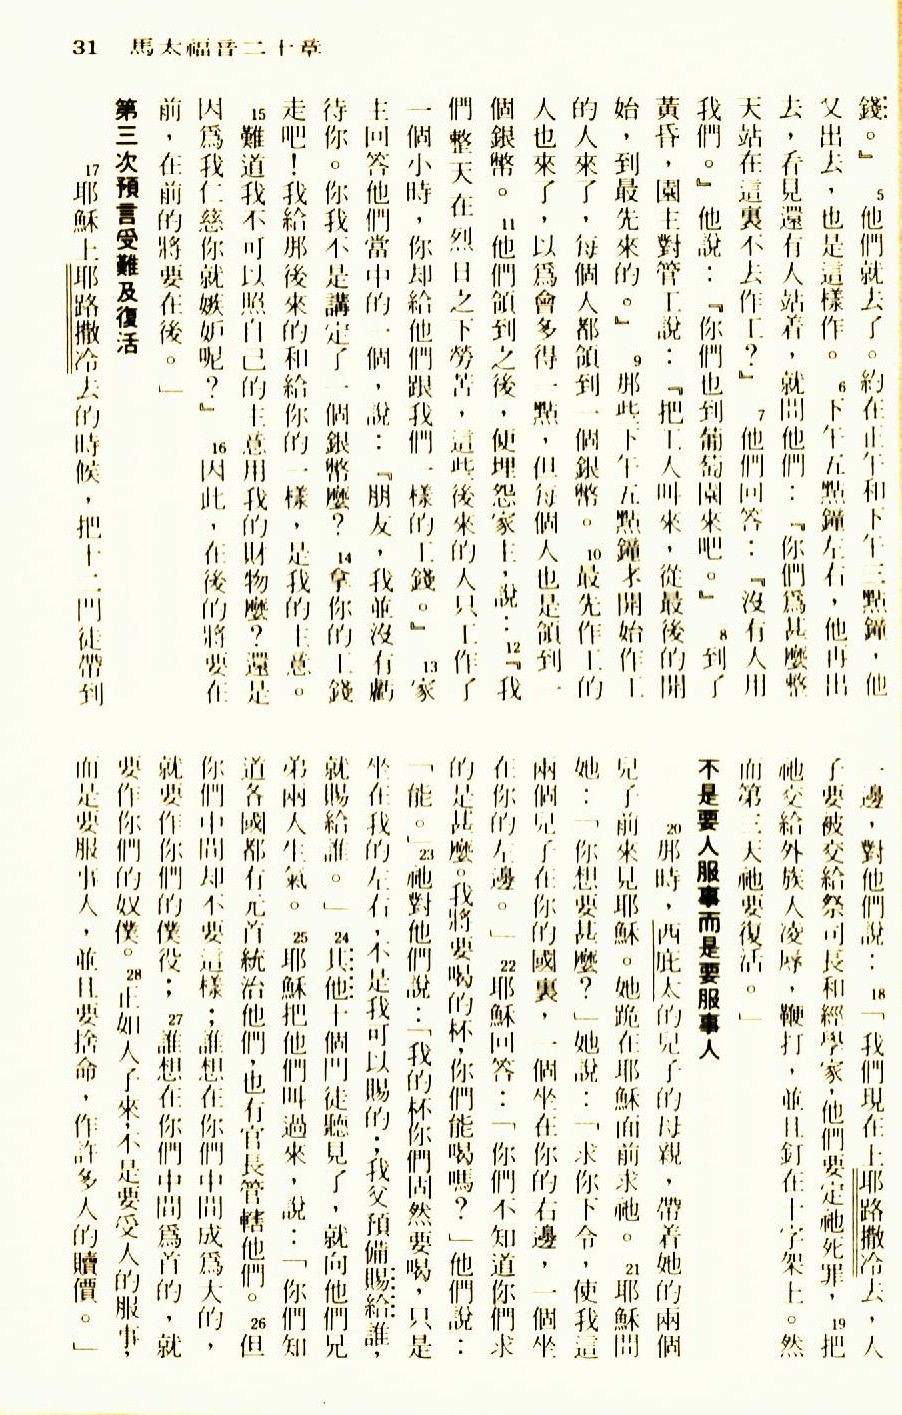 31 馬太福音二十章
錢。』 5他們就去了。約在正午和下午三點鐘，他
又出去，也是這樣作。 6下午五點鐘左右，他再出
去，看見還有人站着，就問他們：『你們爲甚麼整
天站在這裏不去作工？』 7他們回答：『沒有人用
我們。』他說：『你們也到葡萄園來吧。』 8到了
黃昏，園主對管工說：『把工人叫來，從最後的開
始，到最先來的。』 9那些下午五點鐘才開始作工
的人來了，每個人都領到一個銀幣。 10最先作工的
人也來了，以爲會多得一點，但每個人也是領到一
個銀幣。 11他們領到之後，便埋怨家主，說： 12『我
們整天在烈日之下勞苦，這些後來的人只工作了
一個小時，你却給他們跟我們一樣的工錢。』 13家
主回答他們當中的一個，說：『朋友，我並沒有虧
待你。你我不是講定了一個銀幣麼？ 14拿你的工錢
走吧！我給那後來的和給你的一樣，是我的主意。
15難道我不可以照自己的主意用我的財物麼？還是
因爲我仁慈你就嫉妒呢？』 16因此，在後的將要在
前，在前的將要在後。」
第三次預言受難及復活
17耶穌上耶路撒冷去的時候，把十二門徒帶到
一邊，對他們說： 18「我們現在上耶路撒冷去，人
子要被交給祭司長和經學家，他們要定祂死罪， 19把
祂交給外族人凌辱，鞭打，並且釘在十字架上。然
而第三天祂要復活。」
不是要人服事而是要服事人
20那時，西庇太的兒子的母親，帶着她的兩個
兒子前來見耶穌。她跪在耶穌面前求祂。 21耶穌問
她：「你想要甚麼？」她說：「求你下令，使我這
兩個兒子在你的國裏，一個坐在你的右邊，一個坐
在你的左邊。」 22耶穌回答：「你們不知道你們求
的是甚麼。我將要喝的杯，你們能喝嗎？」他們說：
「能。」23祂對他們說：「我的杯你們固然要喝，只是
坐在我的左右，不是我可以賜的；我父預備賜給誰，
就賜給誰。」 24其他十個門徒聽見了，就向他們兄
弟兩人生氣。 25耶穌把他們叫過來，說：「你們知
道各國都有元首統治他們，也有官長管轄他們。 26但
你們中間却不要這樣；誰想在你們中間成爲大的，
就要作你們的僕役； 27誰想在你們中間爲首的，就
要作你們的奴僕。 28正如人子來，不是要受人的服事，
而是要服事人，並且要捨命，作許多人的贖價。」